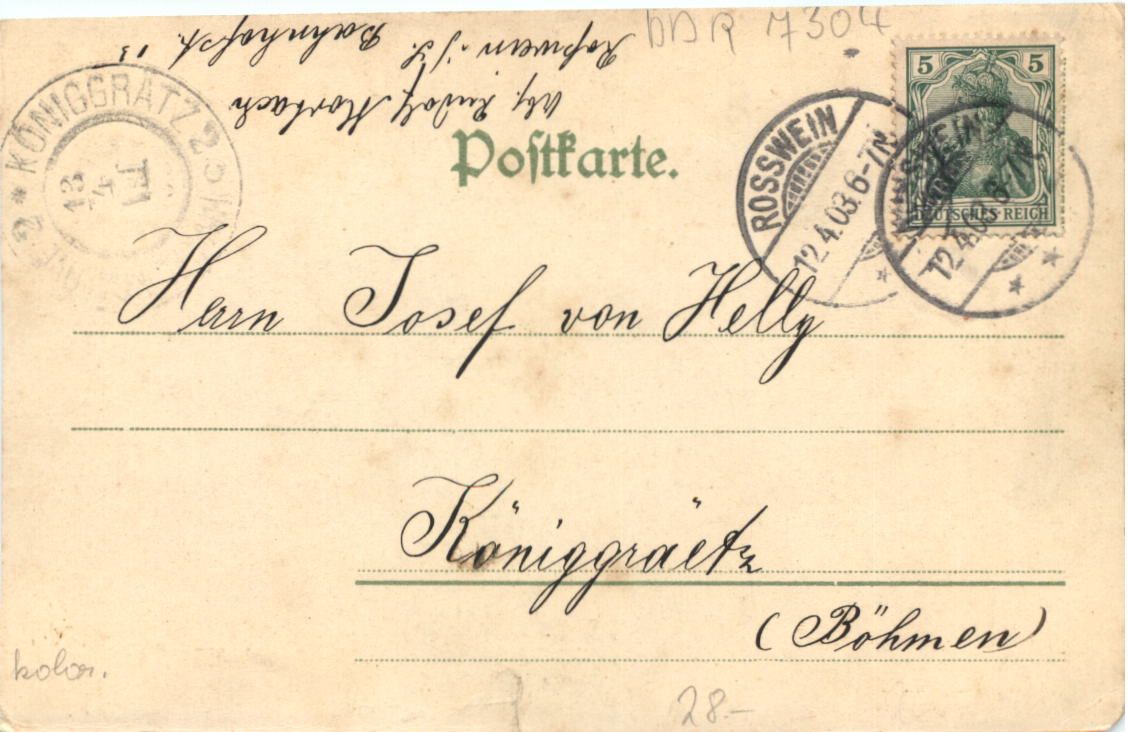 DDR 7304
Abg. Rudolf Morbach
Roßwein i/S.
Bahnhofst. 13
Postkarte.
5 5
DEUTSCHES REICH
ROSSWEIN
12.4.03.6-7N.
ROSSWEIN
12.4.03.6-7N.
KÖNIGGRÄTZ 2
13
4
Herrn Josef von Helly
Königgräetz
(Böhmen)
kolor.
28.–